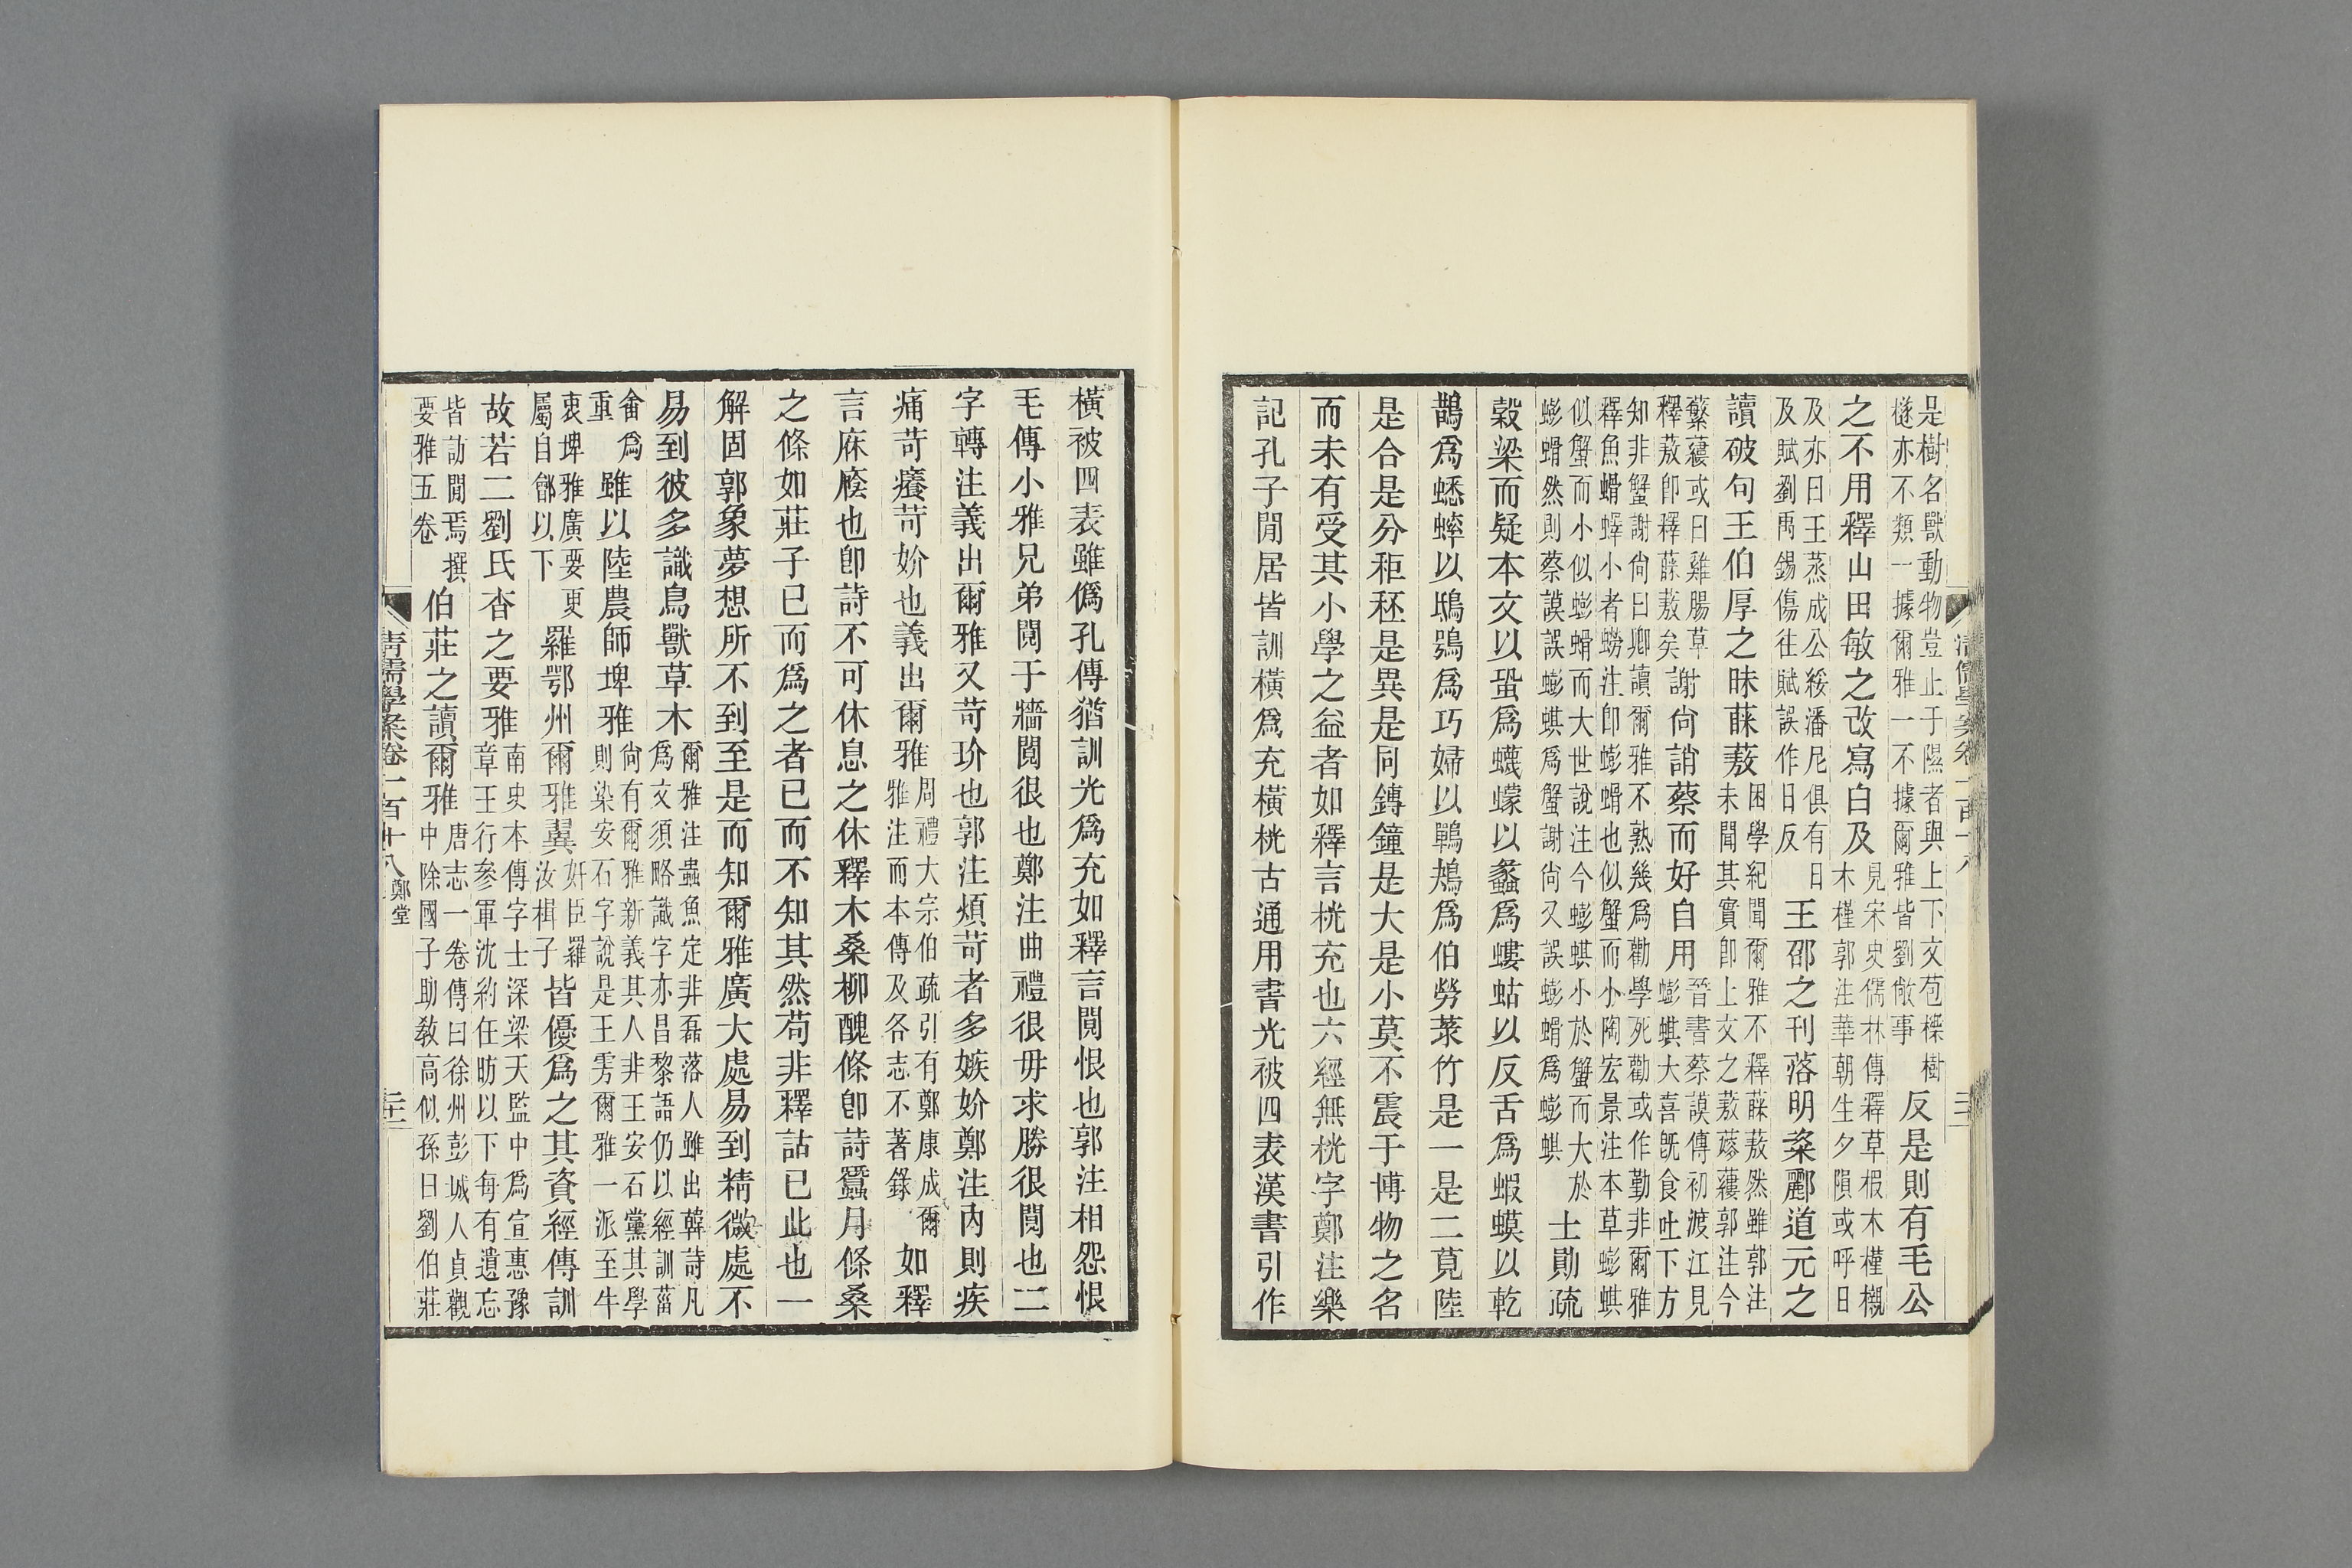 是樹名獸動物豈止于隰者與上下文苞櫟樹
檖亦不類一據爾雅一不據爾雅皆劉敞事
反是則有毛公
之不用釋山田敏之改寫白及
見宋史儒林傳釋草椵木槿櫬
木槿郭注華朝生夕隕或呼日
及亦曰王蒸成公綏潘尼俱有日
及賦劉禹錫傷往賦誤作日反
王邵之刊落明粢酈道元之
讀破句王伯厚之昧蔝蔜
困學紀聞爾雅不釋蔝蔜然雖郭注
未聞其實卽上文之蔜蔆蔞郭注今
蘩蔞或曰雞腸草
釋蔜卽釋蔝蔜矣
謝尙誚蔡而好自用
晉書蔡謨傳初渡江見
蟛蜞大喜旣食吐下方
知非蟹謝尙曰卿讀爾雅不熟幾爲勸學死勸或作勤非爾雅
釋魚蝑蠌小者蟧注卽蟛蝑也似蟹而小陶宏景注本草蟛蜞
似蟹而小似蟛蝑而大世說注今蟛蜞小於蟹而大於
蟛蝑然則蔡謨誤蟛蜞爲蟹謝尙又誤蟛蝑爲蟛蜞
士勛疏
穀梁而疑本文以蛩爲蠛蠓以蠡爲螻蛄以反舌爲蝦蟆以乾
鵲爲蟋蟀以鴟鴞爲巧婦以鶪鳺爲伯勞菉竹是一是二莧陸
是合是分秬秠是異是同鏄鐘是大是小莫不震于博物之名
而未有受其小學之益者如釋言桄充也六經無桄字鄭注樂
記孔子閒居皆訓橫爲充橫桄古通用書光被四表漢書引作
橫被四表雖僞孔傳猶訓光爲充如釋言鬩恨也郭注相怨恨
毛傳小雅兄弟鬩于牆鬩很也鄭注曲禮很毋求勝很鬩也二
字轉注義出爾雅又苛玠也郭注煩苛者多嫉妎鄭注內則疾
痛苛癢苛妎也義出爾雅
周禮大宗伯疏引有鄭康成爾
雅注而本傳及各志不著錄
如釋
言庥廕也卽詩不可休息之休釋木桑柳醜條卽詩蠶月條桑
之條如莊子已而爲之者已而不知其然苟非釋詁已此也一
解固郭象夢想所不到至是而知爾雅廣大處易到精微處不
易到彼多識鳥獸草木
爾雅注蟲魚定非磊落人雖出韓詩凡
爲文須略識字亦昌黎語仍以經訓菑
畬爲
重
雖以陸農師埤雅
尙有爾雅新義其人非王安石黨其學
則染安石字說是王雱爾雅一派至牛
衷埤雅廣要更
屬自鄶以下
羅鄂州爾雅翼
奸臣羅
汝楫子
皆優爲之其資經傳訓
故若二劉氏杳之要雅
南史本傳字士深梁天監中爲宣惠豫
章王行參軍沈約任昉以下每有遺忘
皆訪閒焉撰
要雅五卷
伯莊之讀爾雅
唐志一卷傳曰徐州彭城人貞觀
中除國子助敎高似孫曰劉伯莊
清儒學案卷一百十八 鄭堂